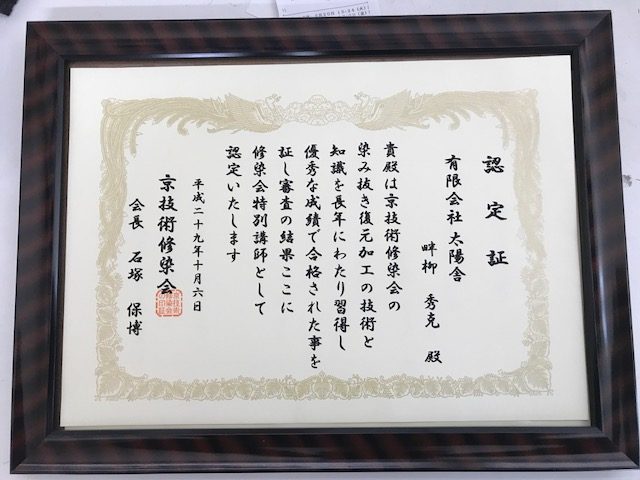 認定証
有限会社 太陽舎
畔柳 秀克 殿
貴殿は京技術修染会の
染み抜き復元加工の技術と
知識を長年にわたり習得し
優秀な成績で合格された事を
証し審査の結果ここに
修染会特別講師として
認定いたします
平成二十九年十月六日
京技術修染会
会長 石塚 保博